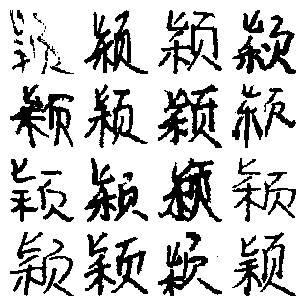 颖颖颖颖
颖颖颖颖
颖颖颖颖
颖颖颖颖